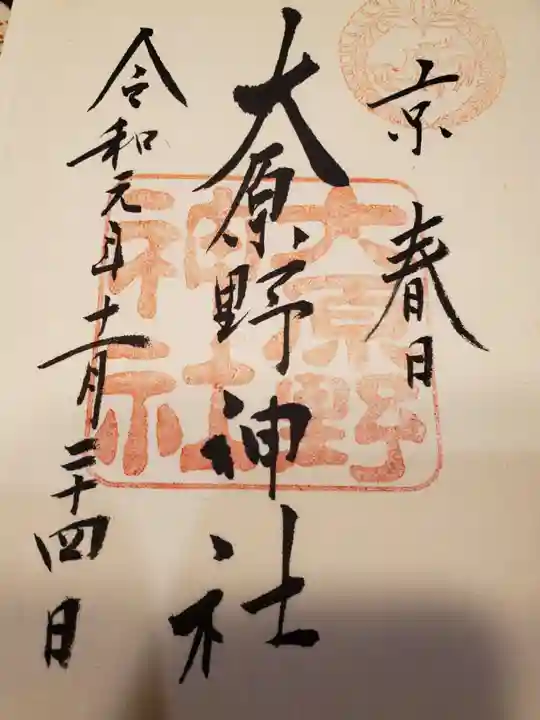 京春日
大原野神社
大原野神社
令和元年十一月二十四日